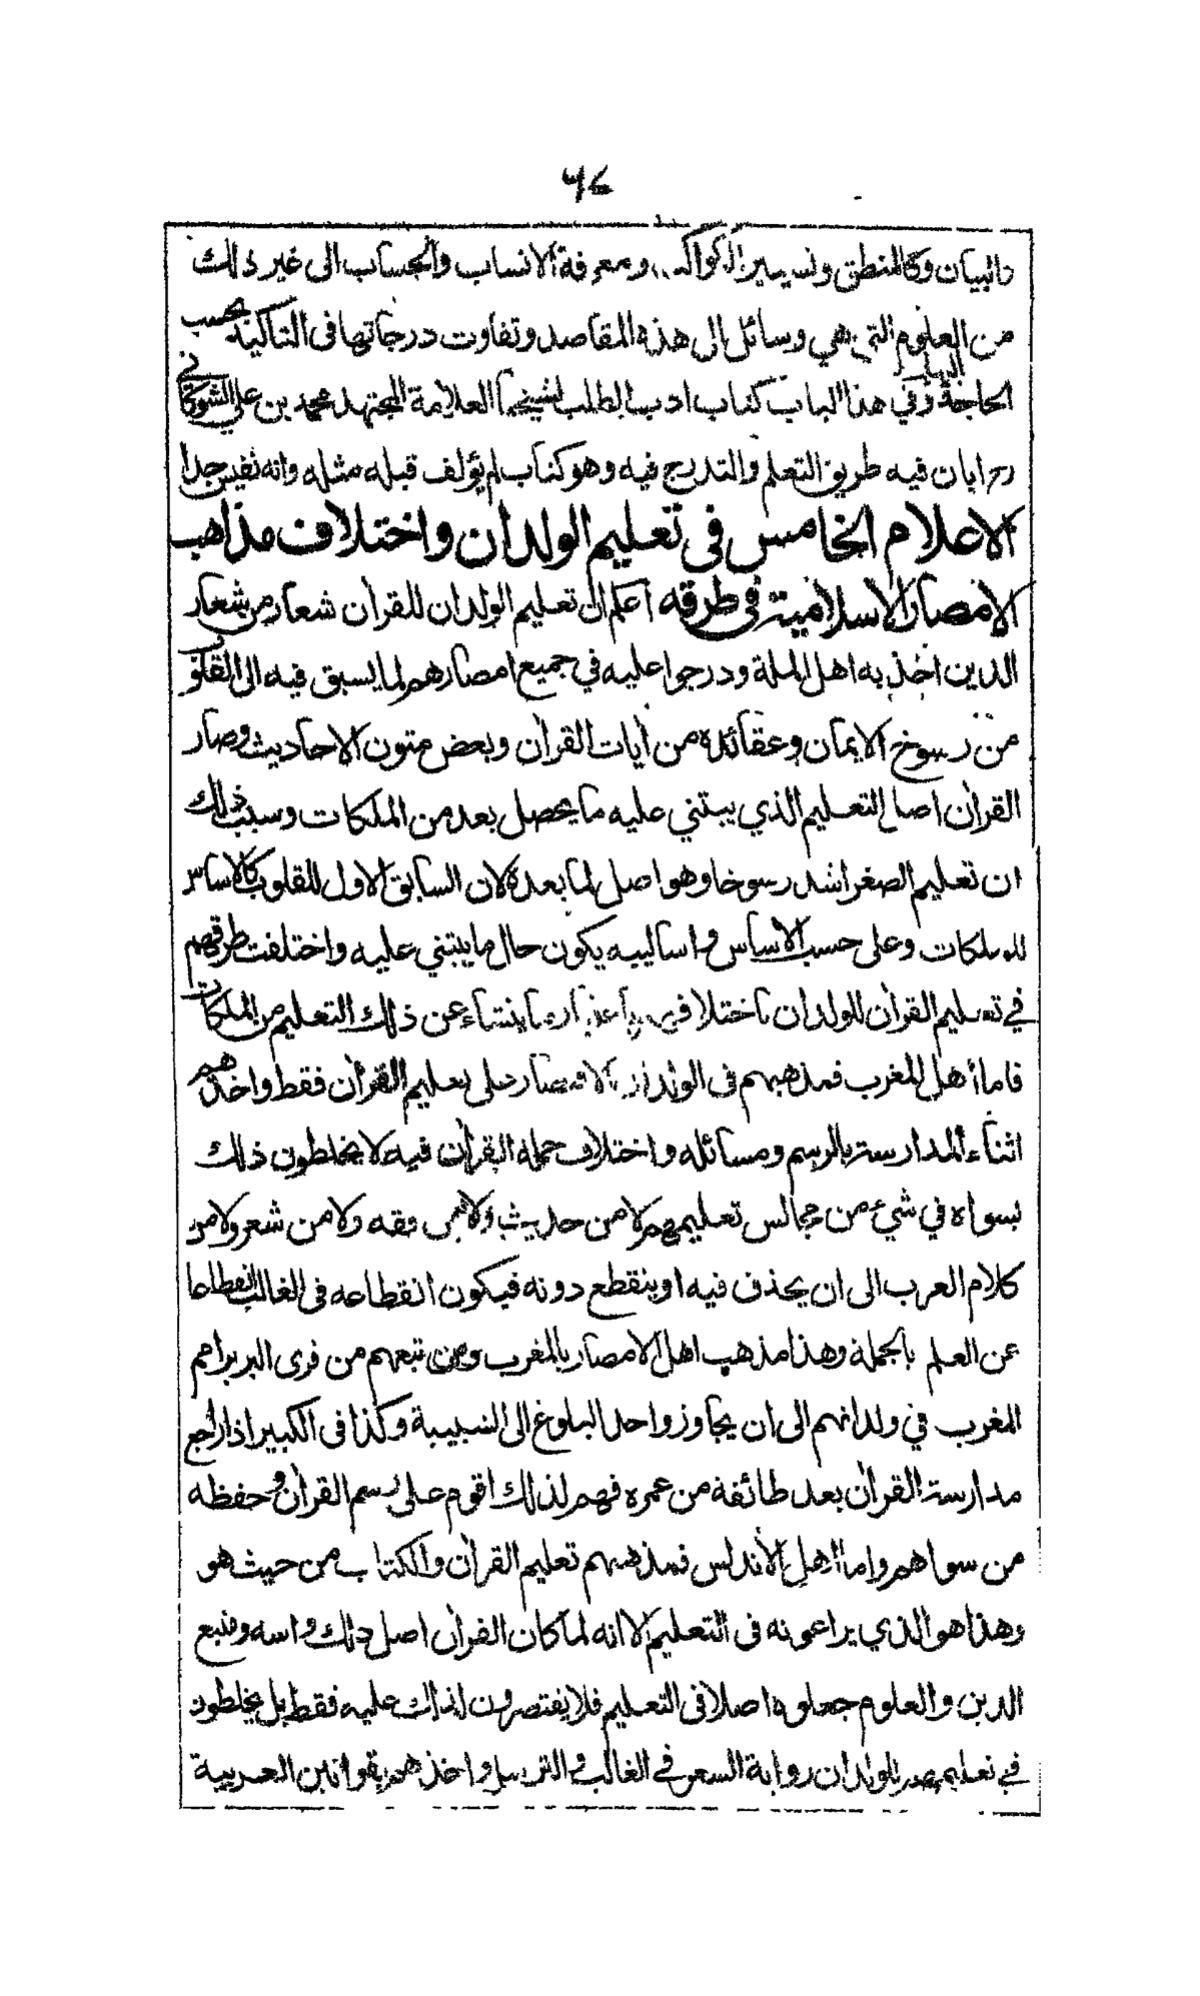 ٧٤
والبيان وكالمنطق وتسيير الكواكب ومعرفة الانساب والحساب الى غير ذلك
من العلوم التي هي وسائل الى هذه المقاصد وتفاوت درجاتها في التاكيد بحسب
الحاجة اليها وفي هذا الباب كتاب ادب الطلب لشيخنا العلامة المجتهد محمد بن علي الشوكاني
ابان فيه طريق التعلم والتدريج فيه وهو كتاب لم يؤلف قبله مثله وانه نفيس جدا
الاعلام الخامس في تعليم الولدان واختلاف مذاهب
الامصار الاسلامية في طرقه اعلم ان تعليم الولدان للقرآن شعار من شعار
الدين اخذ به اهل الملة ودرجوا عليه في جميع امصارهم لما يسبق فيه الى القلوب
من رسوخ الايمان وعقائده من آيات القرآن وبعض متون الاحاديث وصار
القرآن اصل التعليم الذي يبتني عليه ما يحصل بعد من الملكات وسبب ذلك
ان تعليم الصغر اشد رسوخا وهو اصل لما بعده لان السابق الاول للقلوب كالاساس
للملكات وعلى حسب الاساس واساليبه يكون حال ما يبتني عليه واختلفت طرقهم
في تعليم القرآن للولدان باختلافهم باعتبار ما ينشاء عن ذلك التعليم من الملكات
فاما اهل المغرب فمذهبهم في الولدان الاقتصار على تعليم القرآن فقط واخذهم
اثناء المدارسة بالرسم ومسائله واختلاف حملة القرآن فيه لا يخلطون ذلك
بسواه في شيء من مجالس تعليمهم لا من حديث ولا من فقه ولا من شعر ولا من
كلام العرب الى ان يحذق فيه او ينقطع دونه فيكون انقطاعه في الغالب انقطاعا
عن العلم بالجملة وهذا مذهب اهل الامصار بالمغرب ومن تبعهم من قرى البربر امم
المغرب في ولدانهم الى ان يجاوزوا حد البلوغ الى الشبيبة وكذا في الكبير اذا راجع
مدارسة القرآن بعد طائفة من عمره فهم لذلك اقوم على رسم القرآن وحفظه
من سواهم واما اهل الأندلس فمذهبهم تعليم القرآن والكتاب من حيث هو
وهذا هو الذي يراعونه في التعليم الا انه لما كان القرآن اصل ذلك واسه ومنبع
الدين والعلوم جعلوه اصلا في التعليم فلا يقتصرون لذلك عليه فقط بل يخلطون
في تعليمهم للولدان رواية الشعر في الغالب والترسل واخذهم بقوانين العربية